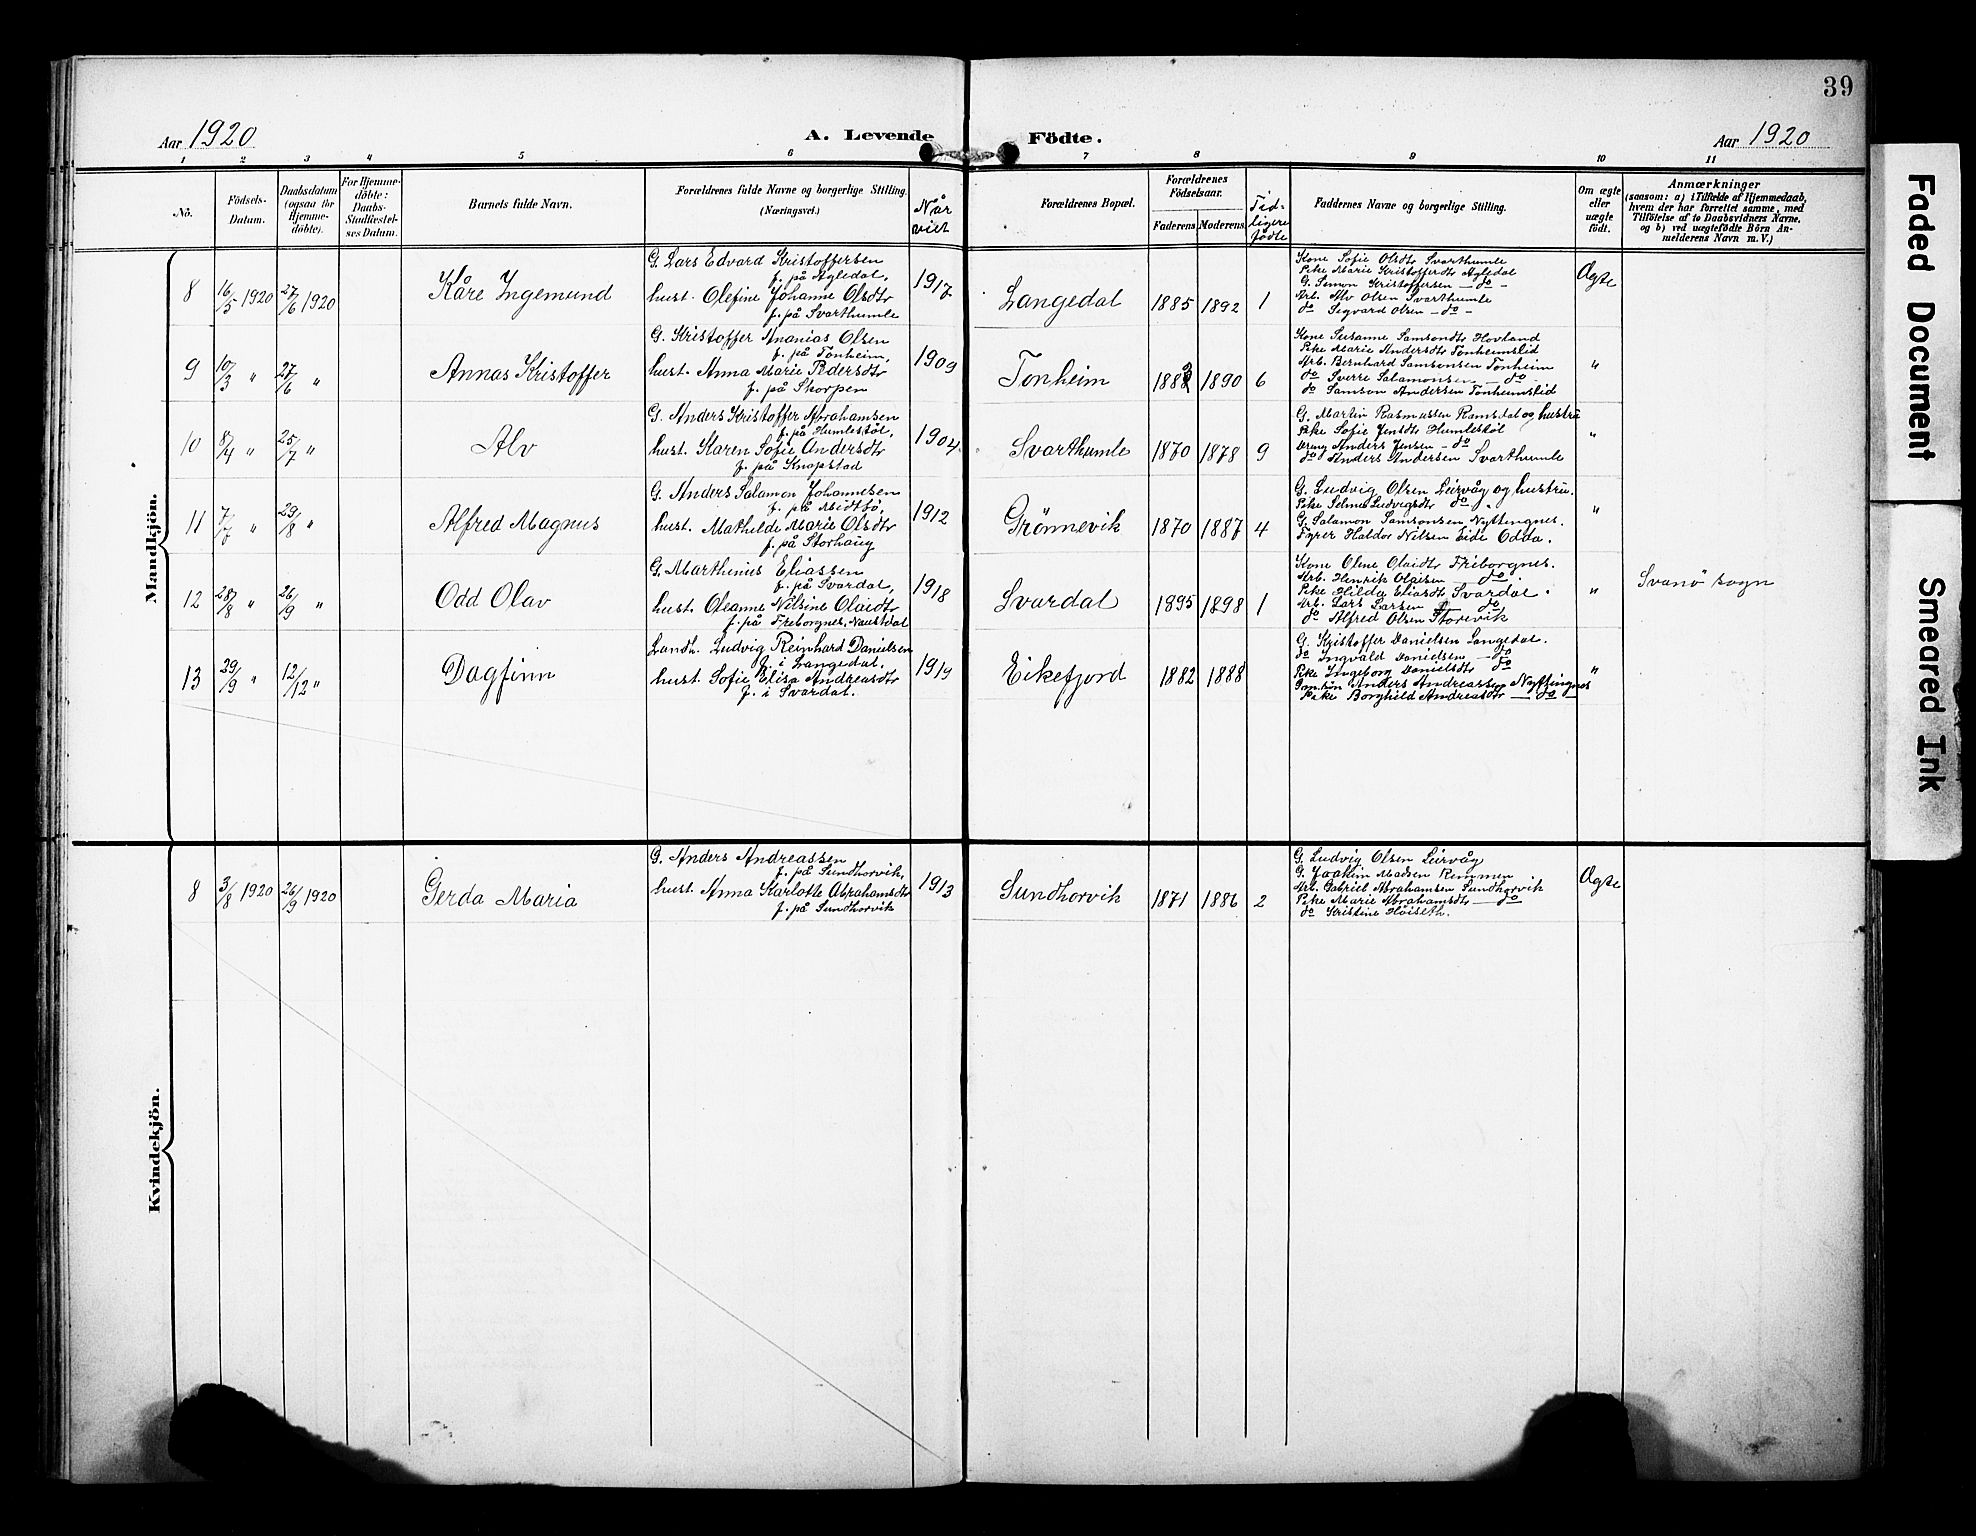 39
Aar 1920 A. Levende Födte. Aar 1920
1 2 3 4 5 6 7 8 9 10 11
No.
Födsels-Datum.
Daabsdatum (ogsaa for Hjemme-döbte).
For Hjemme-döbte: Daabs-Stadfæstel-ses Datum.
Barnets fulde Navn.
Forældrenes fulde Navne og borgerlige Stilling.
(Næringsvei.)
Når viet
Forældrenes Bopæl.
Forældrenes Födselsaar.
Faderens Moderens
Tid-ligere födte
Faddernes Navne og borgerlige Stilling.
Om ægte eller uægte födt.
Anmærkninger
(saasom: a) i Tilfælde af Hjemmedaab,
hvem der har forrettet samme, med
Tilföielse af to Daabsvidners Navne.
og b) ved uægtefödte Börn An-
melderens Navn m. V.)
Mandkjön.
8 16/5 1920 27/6 1920 Kåre Ingemund
G. Lars Edvard Kristoffersen
f. på Agledal,
hust. Olefine Johanne Olsdtr
f. på Svarthumle
1917 Langedal 1885 1892 1
Kone Sofie Olsdtr Svarthumle
Pike Marie Kristoffersdtr Agledal
G. Simon Kristoffersen — do —
Arb. Alv Olsen Svarthumle
do Sigvard Olsen — do —
Ægte
9 10/3 " 27/6 " Annas Kristoffer
G. Kristoffer Ananias Olsen
f. på Tonheim,
hust. Anna Marie Pedersdtr
f. på Skorpen
1909 Tonheim 1882 1890 6
Kone Susanne Samsondtr Hovland
Pike Marie Andersdtr Tonheimslid
Arb. Bernhard Samsonsen Tonheim
do Sverre Salamonsen — do —
do Samson Andersen Tonheimslid
"
10 8/4 " 25/7 " Alv
G. Anders Kristoffer Abrahamsen
f. på Humlestöl,
hust. Karen Sofie Andersdtr
f. på Knapstad
1904 Svarthumle 1870 1878 9
G. Martin Rasmussen Ramsdal og hustru
Pike Sofie Jensdtr Humlestöl
Anders Jensen — do
do Anders Andersen Svarthumle
"
11 7/7 " 29/8 " Alfred Magnus
G. Anders Salamon Johannesen
f. på Midtbö,
hust. Mathilde Marie Olsdtr
f. på Storhaug
1912 Grönnevik 1870 1887 4
G. Ludvig Olsen Leirvåg og hustru.
Pike Selma Ludvigsdtr do
G. Salamon Samsonsen Nyttingnes.
Fyrer Haldor Nilsen Eide Odda.
"
12 28/8 " 26/9 " Odd Olav
G. Marthinus Eliassen
f. på Svardal,
hust. Oleanne Nilsine Olaidtr
f. på Friborgnes, Naustdal
1918 Svardal 1895 1898 1
Kone Oline Olaidtr Friborgnes.
Arb. Henrik Olaisen — do —.
Pike Hilda Eliasdt Svardal.
Arb. Lars Larsen do
do Alfred Olsen Storevik
" Svanö sogn
13 29/9 " 12/12 " Dagfinn
Landh. Ludvig Reinhard Danielsen
f. i Langedal.
hust. Sofie Elisa Andreasdtr
f. i Svardal.
1919 Eikefjord 1882 1888
G. Kristoffer Danielsen Langedal.
do Ingvald Danielsen — do
Pike Ingeborg Danielsdtr do
Anders Andreassen Nyttingnes
Pike Borghild Andreasdtr — do —
"
Kvindekjön.
8 3/8 1920 26/9 1920 Gerda Maria
G. Anders Andreassen
f. på Sundhorvik,
hust. Anna Karlotte Abrahamsdtr
f. på Sundhorvik
1913 Sundhorvik 1871 1886 2
G. Ludvig Olsen Leirvåg
G. Joakim Madsen Remmen
Arb. Gabriel Abrahamsen Sundhorvik
Pike Marie Abrahamsdtr — do
do Kristine Höiseth.
Ægte
Faded Document
Smeared Ink